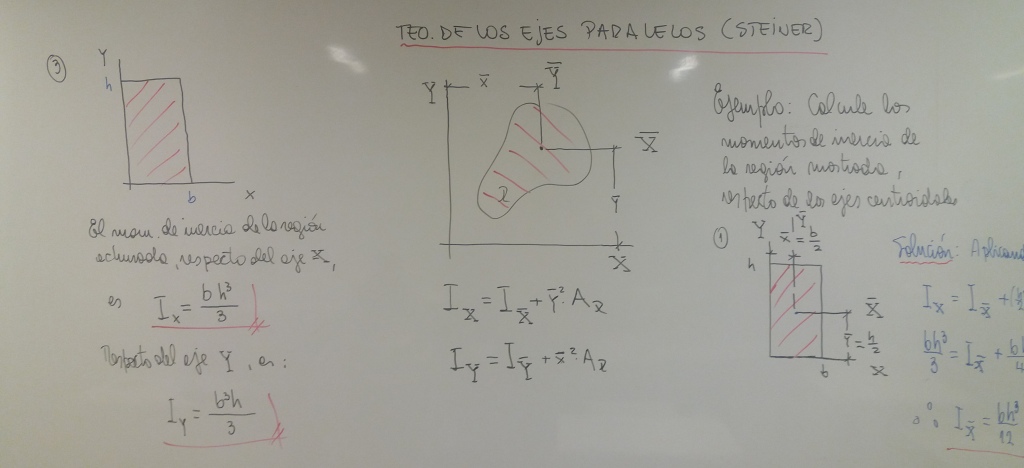 TEO. DE LOS EJES PARALELOS (STEINER)
3
Y
h
b
x
El mom. de inercia de la región
achurada, respecto del eje X,
es I_x = bh³/3
Respecto del eje Y, es:
I_Y = b³h/3
Y x̄ Ȳ
X̄
R
ȳ
X
I_X = I_X̄ + ȳ²·A_R
I_Y = I_Ȳ + x̄²·A_R
Ejemplo: Calcule los
momentos de inercia de
la región mostrada,
respecto de los ejes centroidales
1
Y Ȳ
x̄ = b/2
h
X̄
ȳ = h/2
b
X
Solución: Aplicand
I_X = I_X̄ +
bh³/3 = I_X̄ +
∴ I_X̄ = bh³/12